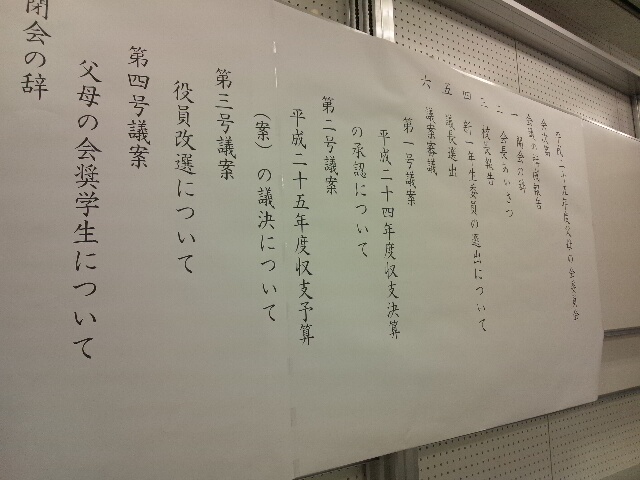 平成二十五年度父母の会委員会
会次第
会議の経過報告
一 開会の辞
二 会長あいさつ
三 校長報告
四 新一年生委員の選出について
五 議長選出
六 議案審議
第一号議案
平成二十四年度収支決算
の承認について
第二号議案
平成二十五年度収支予算
(案)の議決について
第三号議案
役員改選について
第四号議案
父母の会奨学生について
閉会の辞